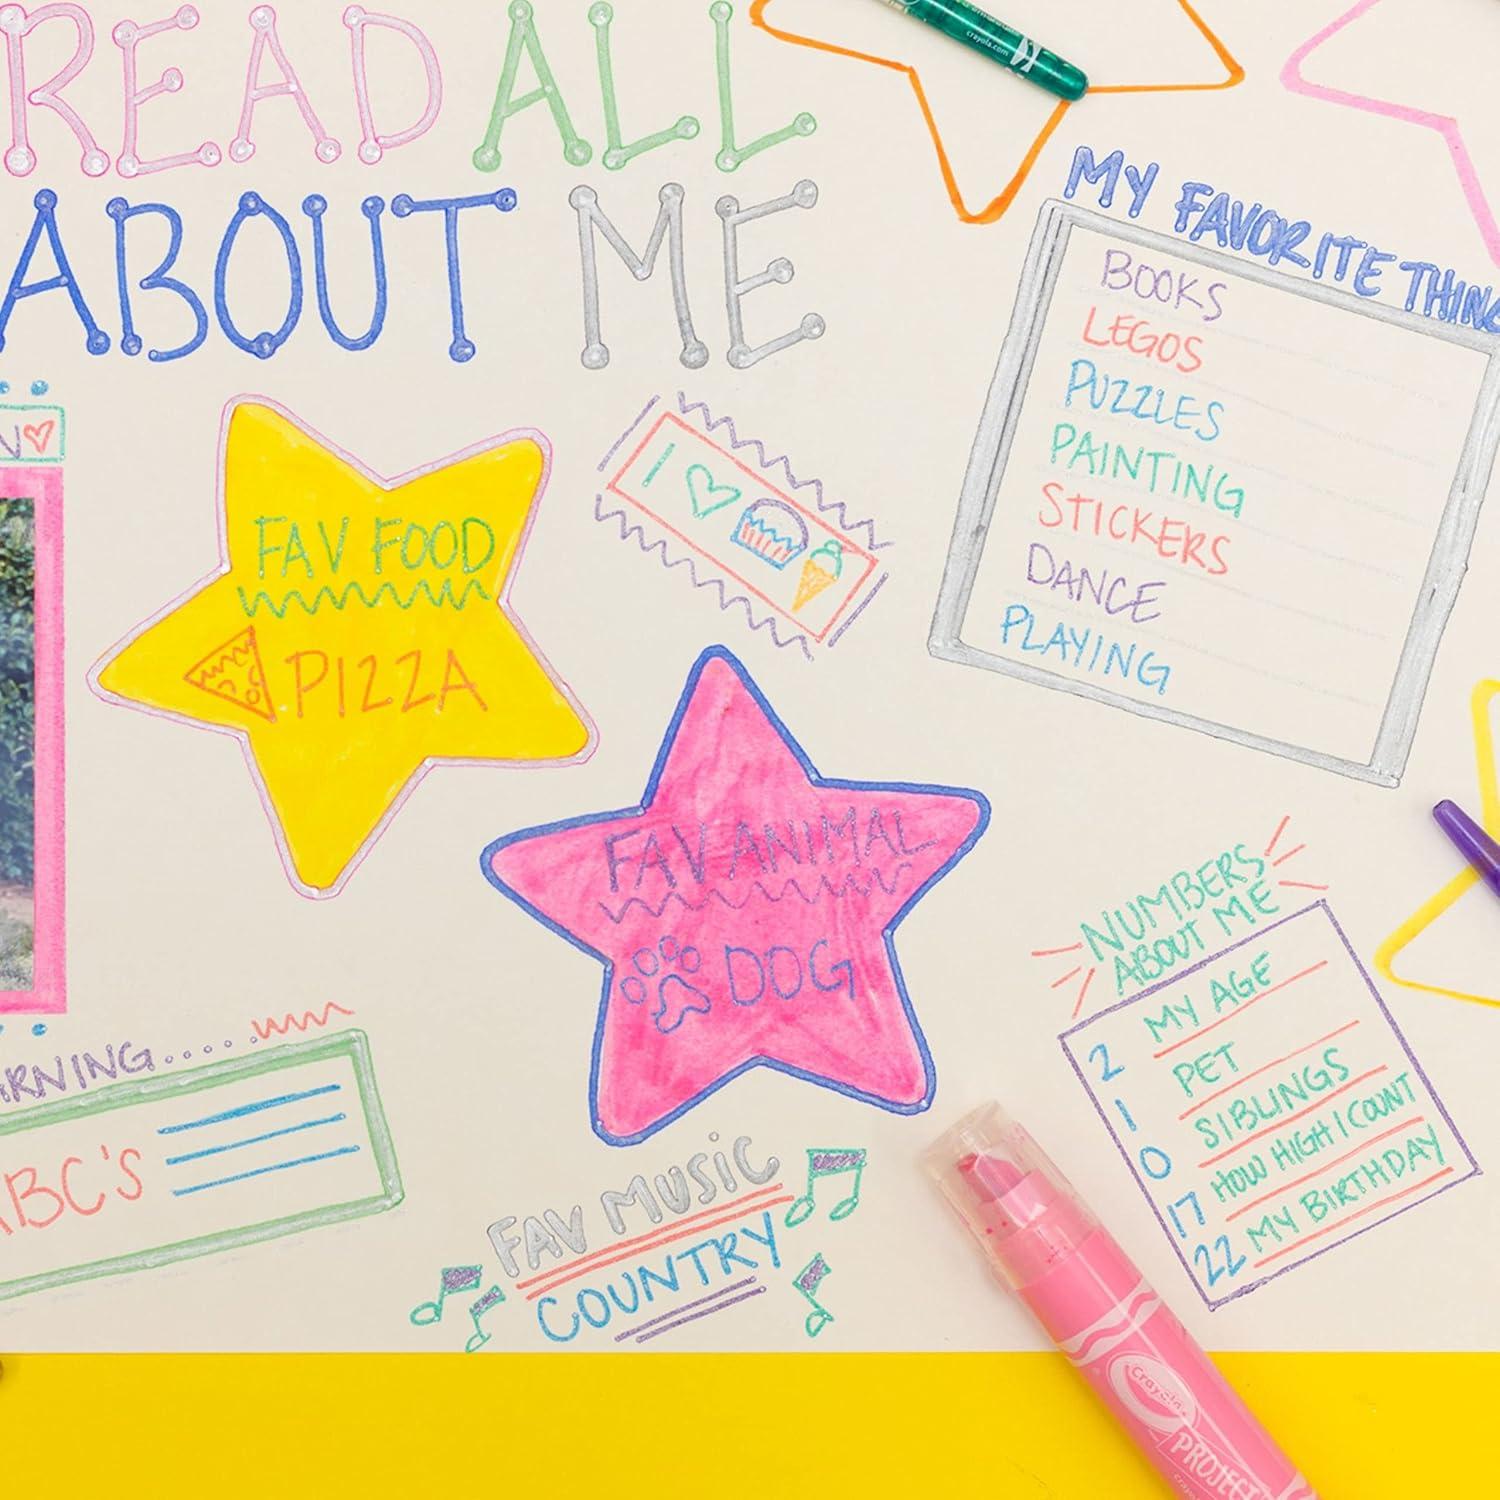 READ ALL
ABOUT ME
crayola.com
MY FAVORITE THING
BOOKS
LEGOS
PUZZLES
PAINTING
STICKERS
DANCE
PLAYING
N
FAV FOOD
PIZZA
I
FAV ANIMAL
DOG
NUMBERS
ABOUT ME
2 MY AGE
1 PET
0 SIBLINGS
17 HOW HIGH I COUNT
22 MY BIRTHDAY
ARNING.....
ABC'S
FAV MUSIC
COUNTRY
Crayola
PROJECT